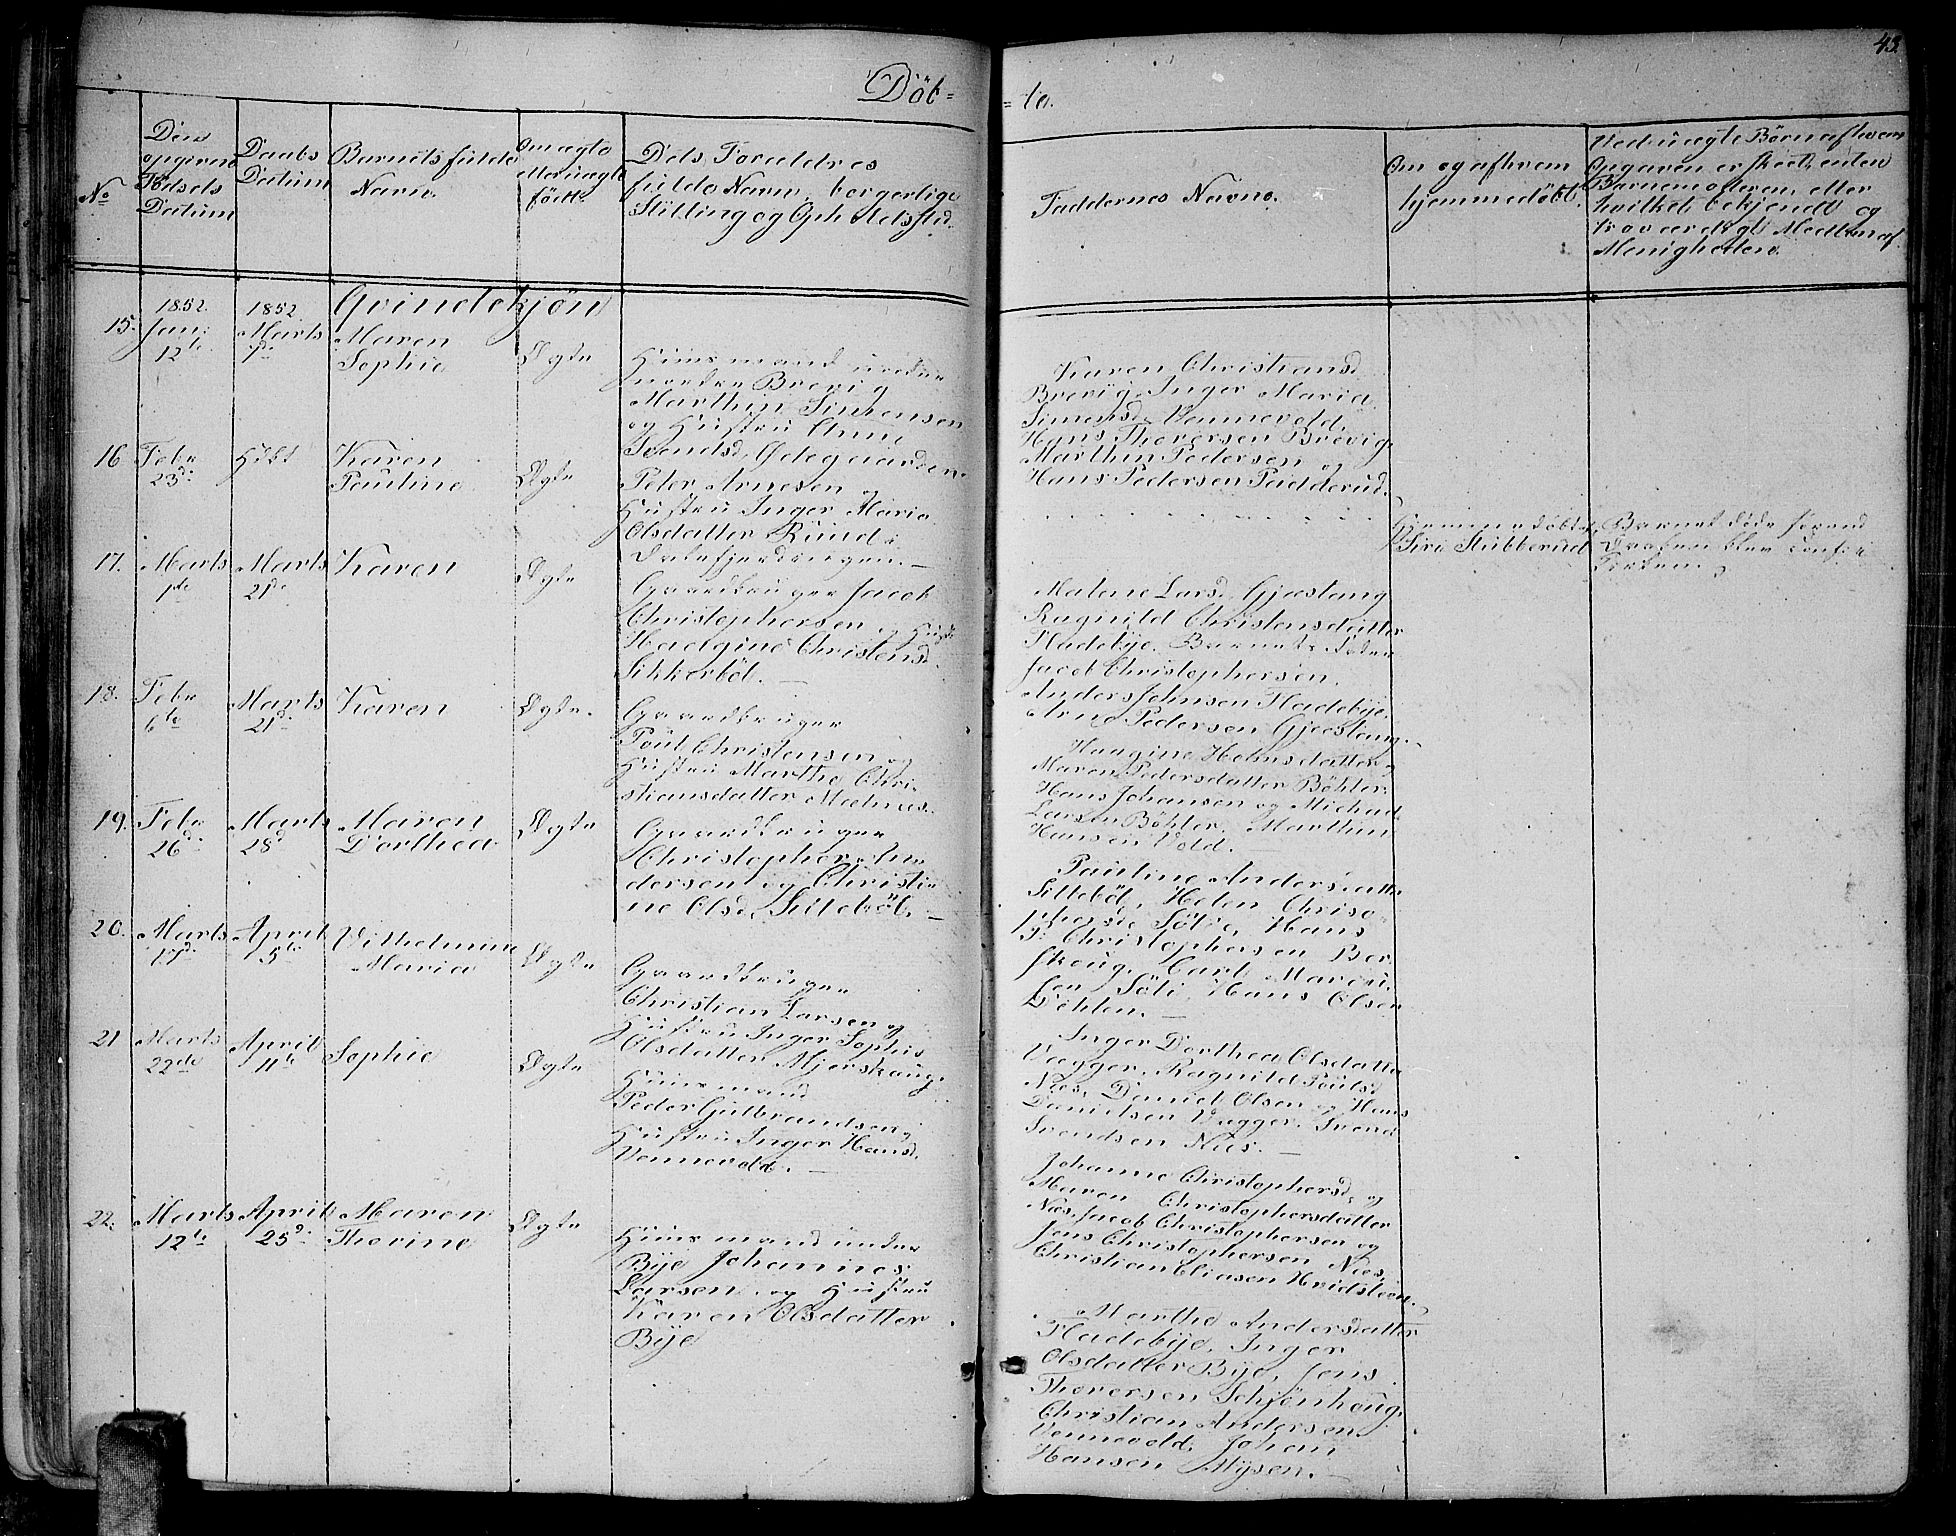 43.
Döb=
=te.
No
Den opgivne Födsels Datum
Daabs Datum
Barnets fulde Navn.
Om ægte eller uægte födt.
Dets Forældres fulde Navn, borgerlige Stilling og Opholdssted.
Faddernes Navne.
Om og af hvem hjemmedöbt.
Ved uægte Börn af hvem Opgaven er skeet, enten Barnemoderen, eller hvilket bekjendt og troværdigt Medlem af Menigheden.
Qvindekjön
15.
1852.
Jan:
12te
1852
Marts
7de
Maren
Sophie
Ægte
Huusmand under
nordre Brevig
Marthin Simensen
og Hustru Anne
Svendsd. Ødeguarden.
Karen Christiansd.
Brevig, Inger Maria
Simensd. Vennevold,
Hans Thoresen Brevig,
Marthin Pedersen og
Hans Pedersen Padderud.
16
Febr
23d:
Karen
Pauline
Ægte
Peter Arnesen og
Hustru Inger Maria
Olsdatter Rund i
Hjemmedöbt af
Siri Stubberud
Barnet döde forend
Daaben blev
17.
Marts
1de
Marts
21de
Karen
Ægte
Gaardbruger Jacob
Christophersen og Hustr
Haagine Christensd.
Sikkeböl. —
Malene Larsd. Gjestang
Ragnild Christensdatter
Fladebye, Barnets Fader
Jacob Christophersen.
Anders Johnsen Fladebye,
Arne Pedersen Gjestang. —
18.
Febr
6te
Marts
21d.
Karen
Ægte.
Gaardbruger
Poul Christensen og
Hustru Marthe Chri-
stiansdatter Melnes.
Haagine Helmsdatter og
Maren Pedersdatter Böhler,
Hans Johansen og Michael
Larsen Böhler, Marthin
Hansen Vold. —
19.
Febr
26d:
Marts
28d
Maren
Dorthea
Ægte
Gaardbruger
Christopher An-
dersen og Christi-
ne Olsd. Sitteböl. —
Pauline Andersdatt.
Sitteböl, Helen Christo-
phersd. Söli, Hans
Christophersen Ber-
skoug, Carl Marcu-
sen Söli, Hans Olsen
Dehlen. —
20.
Marts
17d.
April
5te
Vilhelmine
Maria
Ægte
Gaardbruger
Christian Larsen og
Hustru Inger Sophie
Olsdatter Mjerskaug.
Inger Dorthea Olsdatter
Vegger, Ragnild Pouls.
Nies, Daniel Olsen og Hans
Danielsen Vegger, Svend
Svendsen Nies. —
21
Marts
22de
April
11te
Sophie
Ægte
Huusmand
Peder Gulbrandsen og
Hustru Inger Hansd.
Vennevold. —
Johanne Christophersd. og
Maren Christophersdatter
Nies, Jacob Christophersen og
Jens Christophersen Nies,
Christian Eliasen Hvidsteen.
22.
Marts
12te
April
25d:
Maren
Thorine
Ægte
Huusmand under
Bye Johannes
Larsen og Hustru
Karen Olsdatter
Bye
Marthe Andersdatter
Fladebye, Inger
Olsdatter Bye, Jens
Thoresen Schjönhaug,
Christian Andersen
Vennevold, Johan
Hansen Mysen. —